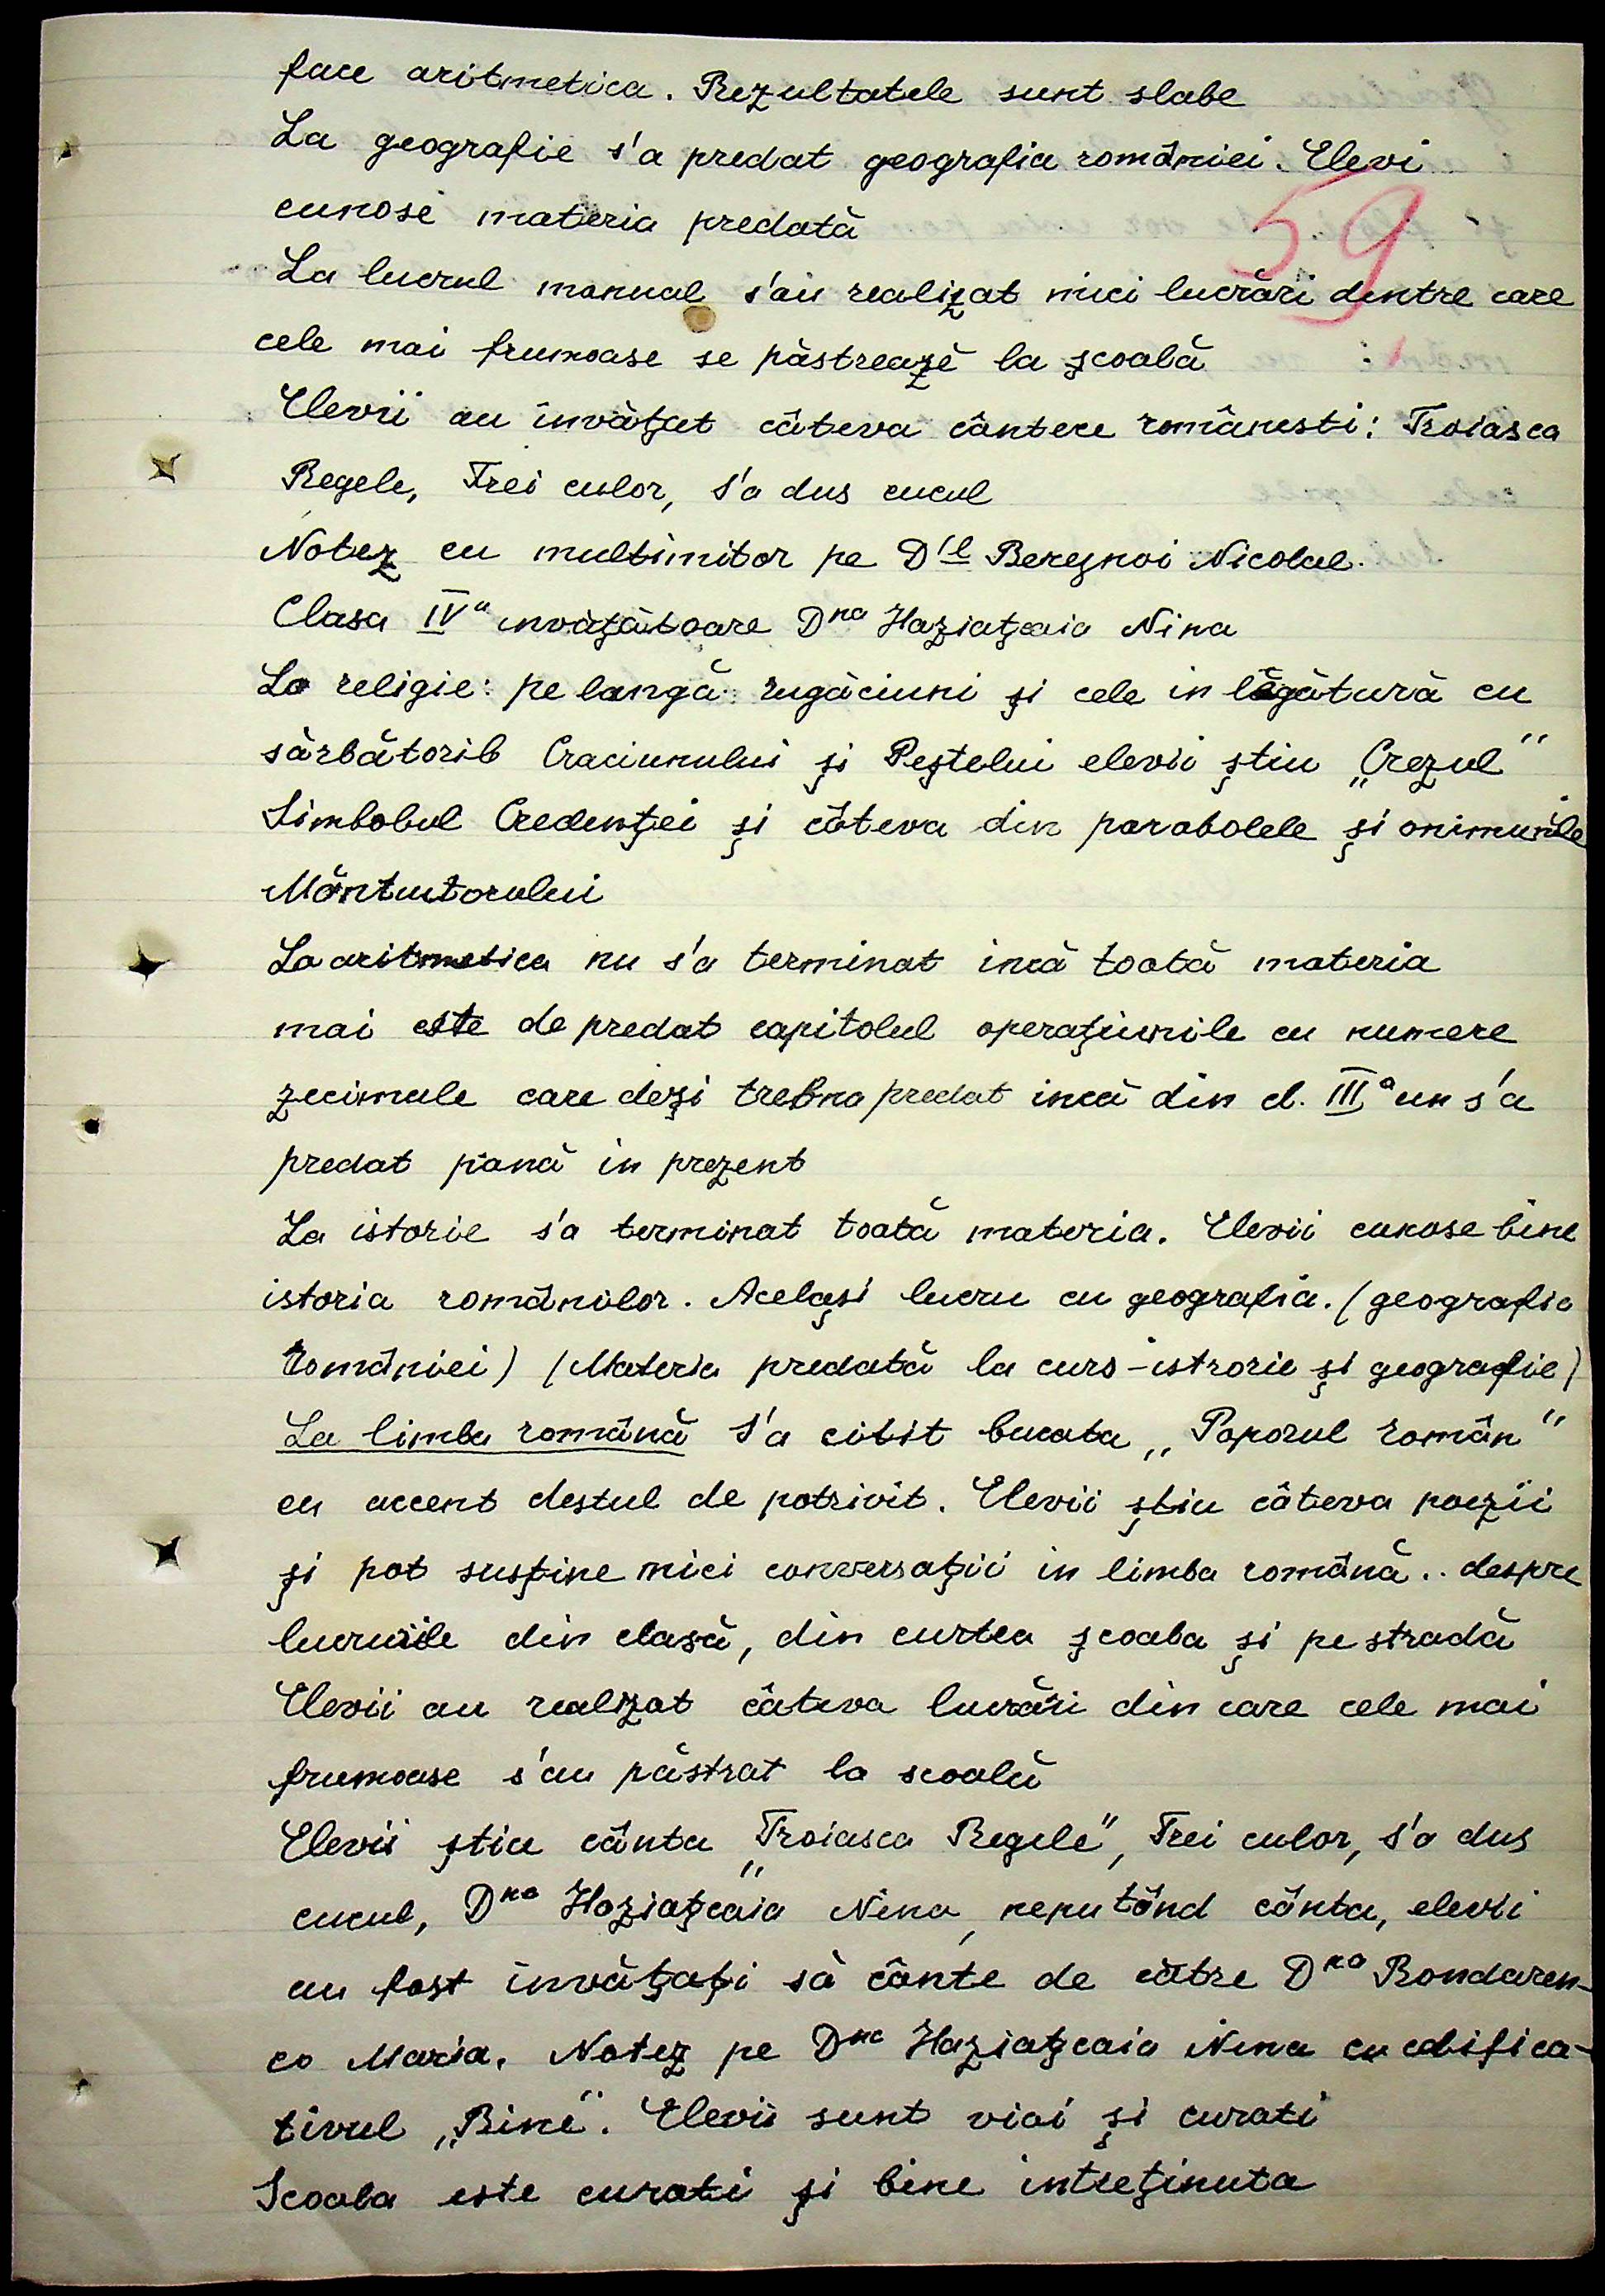 face aritmetica. Rezultatele sunt slabe
La geografie s'a predat geografia româniei. Elevi
59
cunosc materia predată
La lucrul manual s'au realizat mici lucrări dintre care
cele mai frumoase se păstrează la școală
Elevii au învățat câteva cântece românesti: Troiasca
Regele, Trei culor, s'a dus cucul
Notez cu multimitor pe D'l Bereznoi Nicolae.
Clasa IVa invățătoare Dna Haziațcaia Nina
La religie: pe langă rugăciuni și cele in lêgătură cu
sărbătorile Craciunului și Peștelui elevii știu „Crezul"
Simbolul Credenței și câteva din parabolele și onimunile
Mântuitorului
La aritmetica nu s'a terminat incă toată materia
mai este de predat capitolul operațiunile cu numere
zecimale care deși trebna predat incă din cl. IIIa un s'a
predat pană in prezent
La istorie s'a terminat toată materia. Elevii cunosc bine
istoria românilor. Același lucru cu geografia. (geografia
României) (Materia predată la curs-istrorie și geografie)
La limba română s'a citit bucata „Poporul român"
cu accent destul de potrivit. Elevii știu câteva poezii
și pot susține mici conversații in limba română.. despre
lucrurile din clasă, din curtea școala și pe stradă
Elevii au realizat câteva lucrări din care cele mai
frumoase s'au păstrat la scoală
Elevii știu cânta „Troiasca Regele", Trei culor, s'a dus
cucul, Dna Haziațcaia Nina, neputând cânta, elevii
au fost învățați să cânte de către Dna Bondaren-
co Maria. Notez pe Dna Haziațcaia Nina cu calitifica-
tivul „Bine". Elevii sunt vioi și curati
Scoala este curati și bine intreținuta